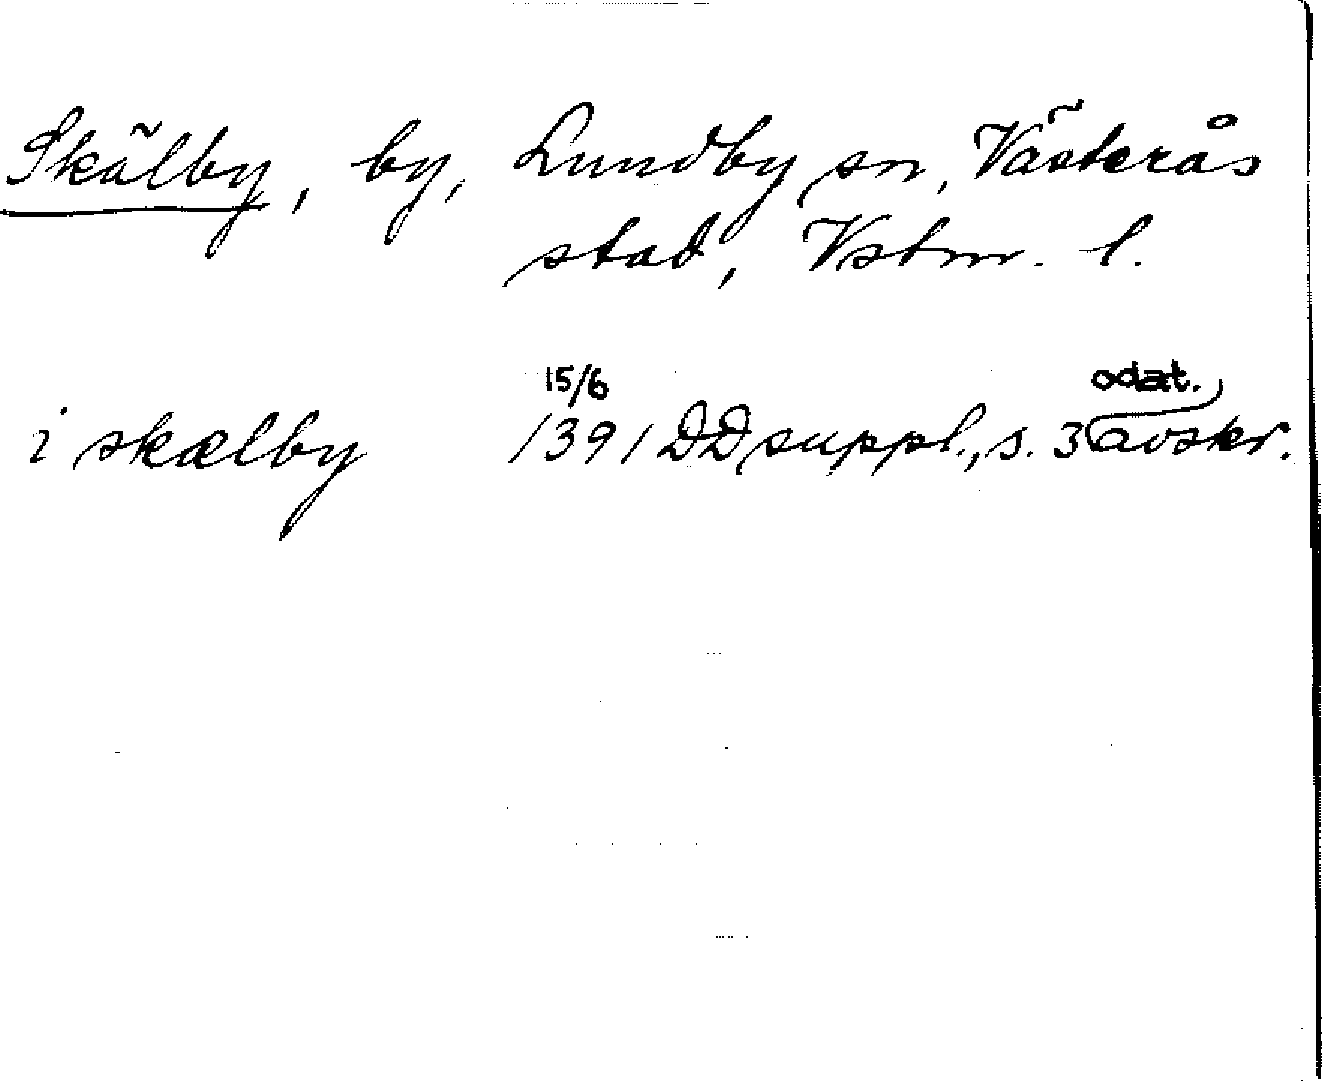 Skälby, by, Lundby sn, Västerås
stad, Vstm. l.
15/6 odat.
i skælby 1391 DD suppl., s. 3 avskr.